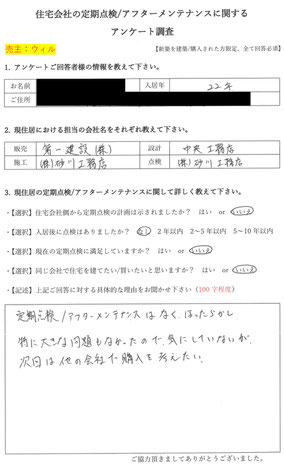 住宅会社の定期点検/アフターメンテナンスに関する
アンケート調査
売主：ウィル
【新築を建築/購入された方限定、全て回答必須】
1. アンケートご回答者様の情報を教えて下さい。
お名前 入居年 22年
ご住所
2. 現住居における担当の会社名をそれぞれ教えて下さい。
販売 第一建設(株) 設計 中央工務店
施工 (株)砂川工務店 点検 (株)砂川工務店
3. 現住居の定期点検/アフターメンテナンスに関して詳しく教えて下さい。
・【選択】住宅会社側から定期点検の計画は示されましたか？ はい or いいえ
・【選択】入居後に点検はありましたか？ なし 2年以内 2〜5年以内 5〜10年以内
・【選択】現在の定期点検に満足していますか？ はい or いいえ
・【選択】同じ会社で住宅を建てたい/買いたいと思いますか？ はい or いいえ
・【記述】上記ご回答に対する具体的な理由をお聞かせ下さい（100字程度）
定期点検/アフターメンテナンスはなく、ほったらかし
特に大きな問題もなかったので、気にしていないが、
次回は他の会社で購入を考えたい。
ご協力頂きましてありがとうございました。